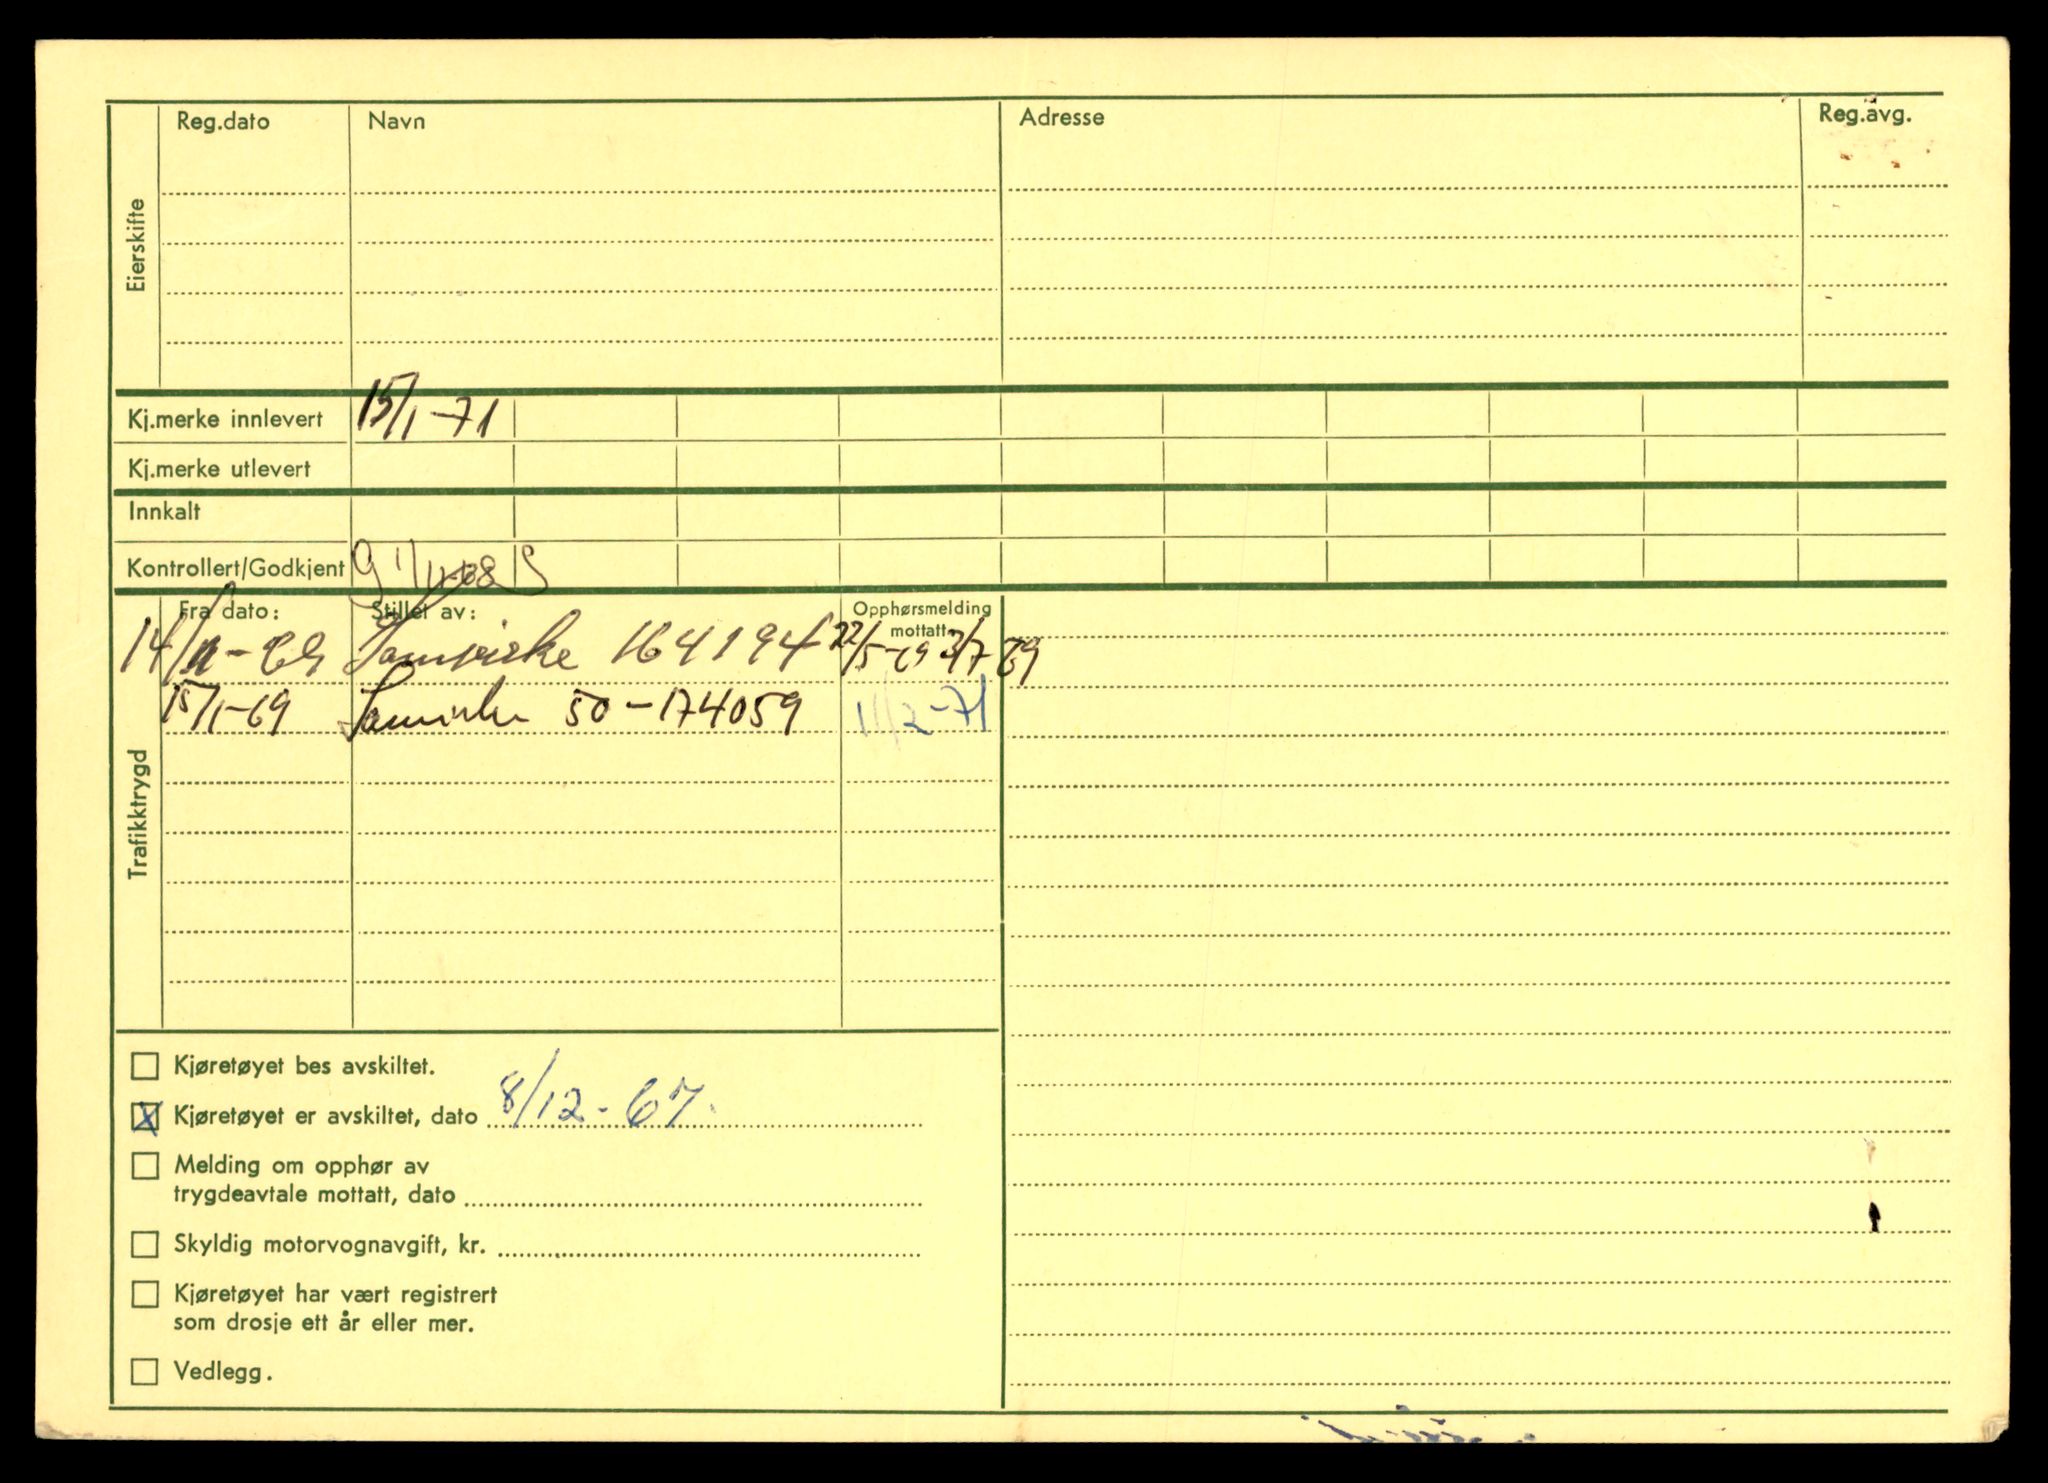 Eierskifte
Reg.dato Navn Adresse Reg.avg.
Kj.merke innlevert 15/1-71
Kj.merke utlevert
Innkalt
Kontrollert/Godkjent
Trafikktrygd
Fra dato: Stillet av: Opphørsmelding mottatt
Samvirke 164194 22/5-69 2/7 69
15/1-69 Samvirke 50-174059 11/2-71
Kjøretøyet bes avskiltet.
X Kjøretøyet er avskiltet, dato 8/12-67.
Melding om opphør av
trygdeavtale mottatt, dato
Skyldig motorvognavgift, kr.
Kjøretøyet har vært registrert
som drosje ett år eller mer.
Vedlegg.